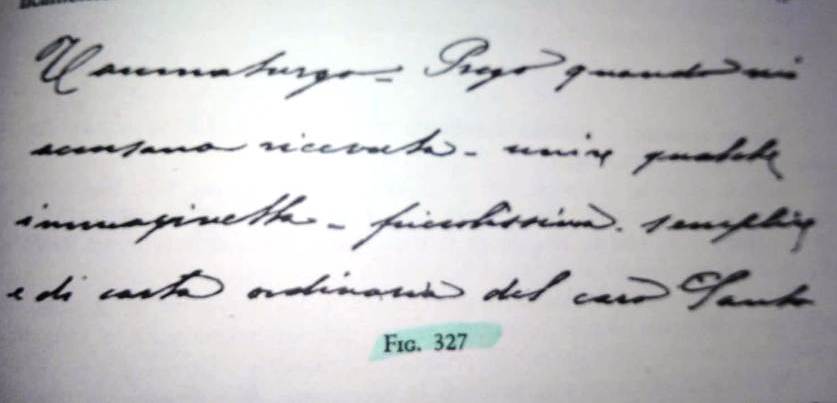 Taumaturgo - Prego quando mi
accusano ricevuta - unire qualche
immaginetta - piccolissima. semplice
e di carta ordinaria del caro Santo
FIG. 327